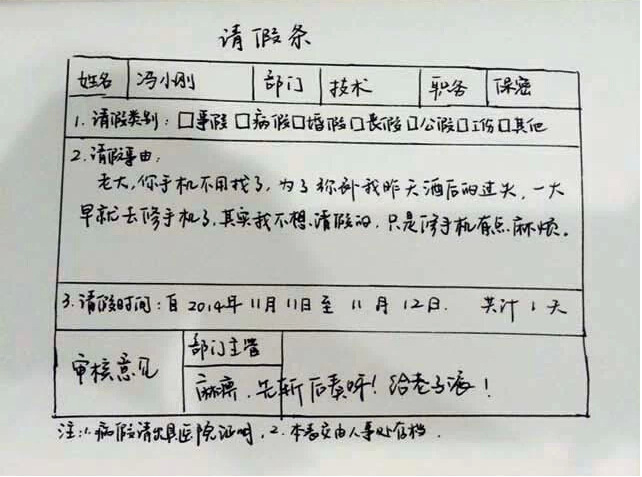 请假条
姓名 冯小刚 部门 技术 职务 保密
1.请假类别：□事假 □病假□婚假□丧假□公假□工伤□其他
2.请假事由：
老大，你手机不用找了，为了弥补我昨天酒后的过失，一大
早就去修手机了，其实我不想请假的，只是修手机有点麻烦。
3.请假时间：自2014年11月11日至11月12日. 共计1天
审核意见 部门主管
麻痹，先斩后奏呀！给老子滚！
注：1.病假请出具医院证明，2.本表交由人事处存档.